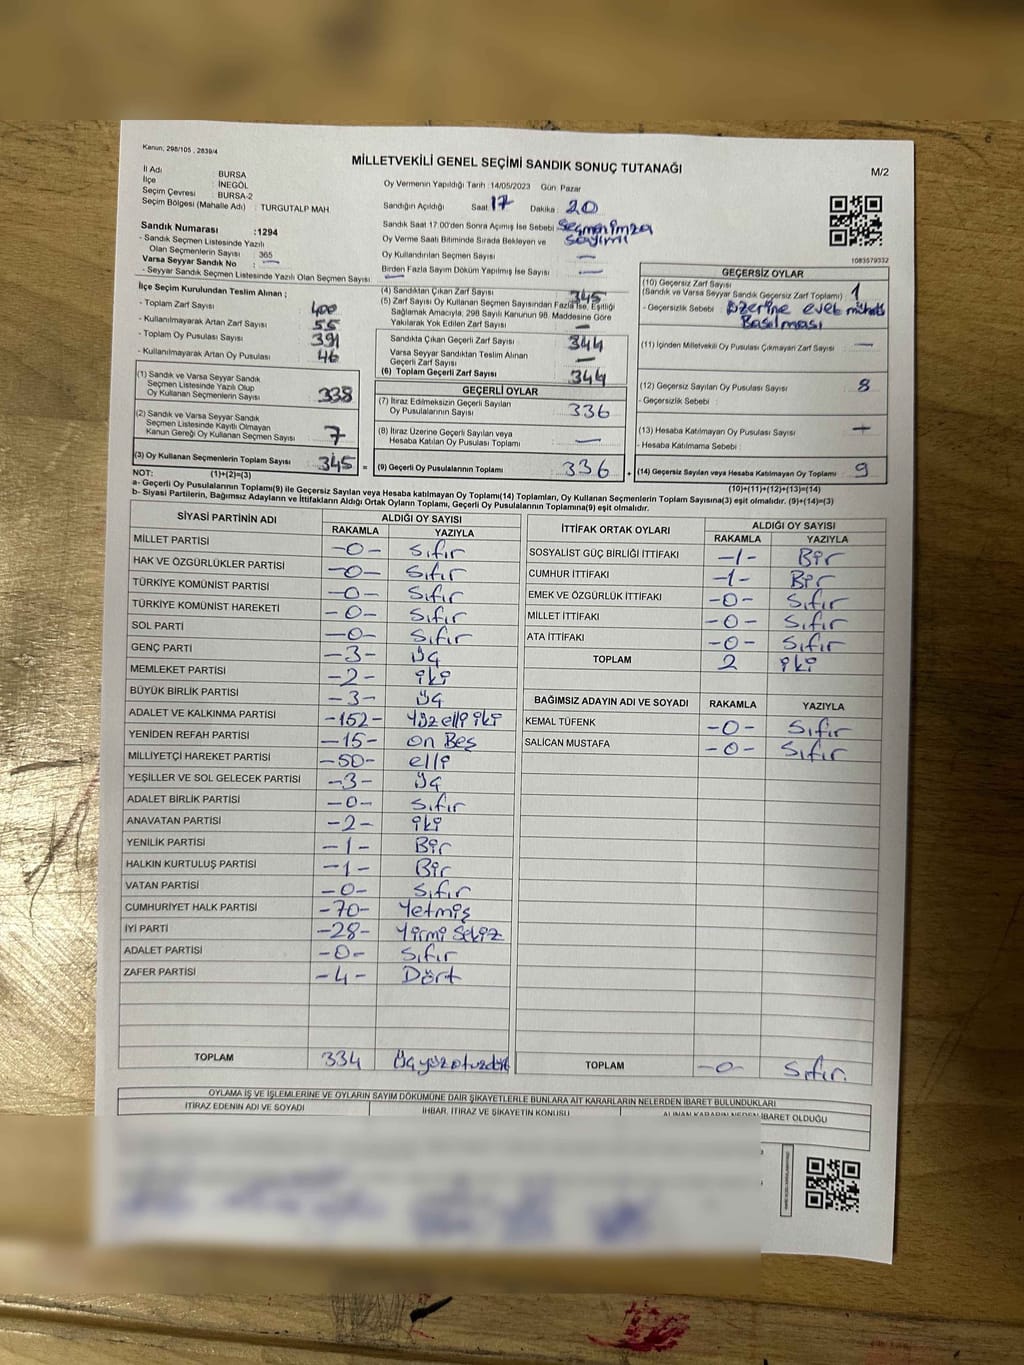 Kanun, 298/105 , 2839/4
MİLLETVEKİLİ GENEL SEÇİMİ SANDIK SONUÇ TUTANAĞI
M/2
İl Adı : BURSA
İlçe : İNEGÖL
Seçim Çevresi : BURSA-2
Seçim Bölgesi (Mahalle Adı) : TURGUTALP MAH
Oy Vermenin Yapıldığı Tarih :14/05/2023 Gün: Pazar
Sandığın Açıldığı Saat: 17 Dakika : 20
Sandık Saat 17:00'den Sonra Açımış İse Sebebi : Seçmen imza
Oy Verme Saati Bitiminde Sırada Bekleyen ve sayımı
Oy Kullandırılan Seçmen Sayısı —
Birden Fazla Sayım Döküm Yapılmış İse Sayısı : —
1083579332
Sandık Numarası :1294
- Sandık Seçmen Listesinde Yazılı
Olan Seçmenlerin Sayısı : 365
Varsa Seyyar Sandık No : —
- Seyyar Sandık Seçmen Listesinde Yazılı Olan Seçmen Sayısı: —
İlçe Seçim Kurulundan Teslim Alınan ;
- Toplam Zarf Sayısı 400
- Kullanılmayarak Artan Zarf Sayısı 55
- Toplam Oy Pusulası Sayısı 391
- Kullanılmayarak Artan Oy Pusulası 46
(1) Sandık ve Varsa Seyyar Sandık
Seçmen Listesinde Yazılı Olup
Oy Kullanan Seçmenlerin Sayısı 338
(2) Sandık ve Varsa Seyyar Sandık
Seçmen Listesinde Kayıtlı Olmayan
Kanun Gereği Oy Kullanan Seçmen Sayısı 7
(3) Oy Kullanan Seçmenlerin Toplam Sayısı 345 =
(4) Sandıktan Çıkan Zarf Sayısı 345
(5) Zarf Sayısı Oy Kullanan Seçmen Sayısından Fazla İse, Eşitliği
Sağlamak Amacıyla, 298 Sayılı Kanunun 98. Maddesine Göre
Yakılarak Yok Edilen Zarf Sayısı —
Sandıkta Çıkan Geçerli Zarf Sayısı 344
Varsa Seyyar Sandıktan Teslim Alınan
Geçerli Zarf Sayısı —
(6) Toplam Geçerli Zarf Sayısı 344
GEÇERLİ OYLAR
(7) İtiraz Edilmeksizin Geçerli Sayılan
Oy Pusulalarının Sayısı 336
(8) İtiraz Üzerine Geçerli Sayılan veya
Hesaba Katılan Oy Pusulası Toplamı —
(9) Geçerli Oy Pusulalarının Toplamı 336 +
GEÇERSİZ OYLAR
(10) Geçersiz Zarf Sayısı
(Sandık ve Varsa Seyyar Sandık Geçersiz Zarf Toplamı) : 1
- Geçersizlik Sebebi : üzerine evet
Basılması
(11) İçinden Milletvekili Oy Pusulası Çıkmayan Zarf Sayısı —
(12) Geçersiz Sayılan Oy Pusulası Sayısı 8
- Geçersizlik Sebebi :
(13) Hesaba Katılmayan Oy Pusulası Sayısı —
- Hesaba Katılmama Sebebi :
(14) Geçersiz Sayılan veya Hesaba Katılmayan Oy Toplamı 9
NOT: (1)+(2)=(3)
(10)+(11)+(12)+(13)=(14)
a- Geçerli Oy Pusulalarının Toplamı(9) ile Geçersiz Sayılan veya Hesaba katılmayan Oy Toplamı(14) Toplamları, Oy Kullanan Seçmenlerin Toplam Sayısına(3) eşit olmalıdır. (9)+(14)=(3)
b- Siyasi Partilerin, Bağımsız Adayların ve İttifakların Aldığı Ortak Oyların Toplamı, Geçerli Oy Pusulalarının Toplamına(9) eşit olmalıdır.
SİYASİ PARTİNİN ADI ALDIĞI OY SAYISI
RAKAMLA YAZIYLA
MİLLET PARTİSİ -0- Sıfır
HAK VE ÖZGÜRLÜKLER PARTİSİ -0- Sıfır
TÜRKİYE KOMÜNİST PARTİSİ -0- Sıfır
TÜRKİYE KOMÜNİST HAREKETİ -0- Sıfır
SOL PARTİ -0- Sıfır
GENÇ PARTİ -3- Üç
MEMLEKET PARTİSİ -2- iki
BÜYÜK BİRLİK PARTİSİ -3- Üç
ADALET VE KALKINMA PARTİSİ -152- Yüz elli iki
YENİDEN REFAH PARTİSİ -15- on Beş
MİLLİYETÇİ HAREKET PARTİSİ -50- elli
YEŞİLLER VE SOL GELECEK PARTİSİ -3- Üç
ADALET BİRLİK PARTİSİ -0- Sıfır
ANAVATAN PARTİSİ -2- iki
YENİLİK PARTİSİ -1- Bir
HALKIN KURTULUŞ PARTİSİ -1- Bir
VATAN PARTİSİ -0- Sıfır
CUMHURİYET HALK PARTİSİ -70- Yetmiş
İYİ PARTİ -28- Yirmi Sekiz
ADALET PARTİSİ -0- Sıfır
ZAFER PARTİSİ -4- Dört
TOPLAM 334 Üçyüzotuzdört
İTTİFAK ORTAK OYLARI ALDIĞI OY SAYISI
RAKAMLA YAZIYLA
SOSYALİST GÜÇ BİRLİĞİ İTTİFAKI -1- Bir
CUMHUR İTTİFAKI -1- Bir
EMEK VE ÖZGÜRLÜK İTTİFAKI -0- Sıfır
MİLLET İTTİFAKI -0- Sıfır
ATA İTTİFAKI -0- Sıfır
TOPLAM 2 iki
BAĞIMSIZ ADAYIN ADI VE SOYADI RAKAMLA YAZIYLA
KEMAL TÜFENK -0- Sıfır
SALİCAN MUSTAFA -0- Sıfır
TOPLAM -0- Sıfır.
OYLAMA İŞ VE İŞLEMLERİNE VE OYLARIN SAYIM DÖKÜMÜNE DAİR ŞİKAYETLERLE BUNLARA AİT KARARLARIN NELERDEN İBARET BULUNDUKLARI
İTİRAZ EDENİN ADI VE SOYADI İHBAR, İTİRAZ VE ŞİKAYETİN KONUSU ALINAN KARARIN NEDEN İBARET OLDUĞU